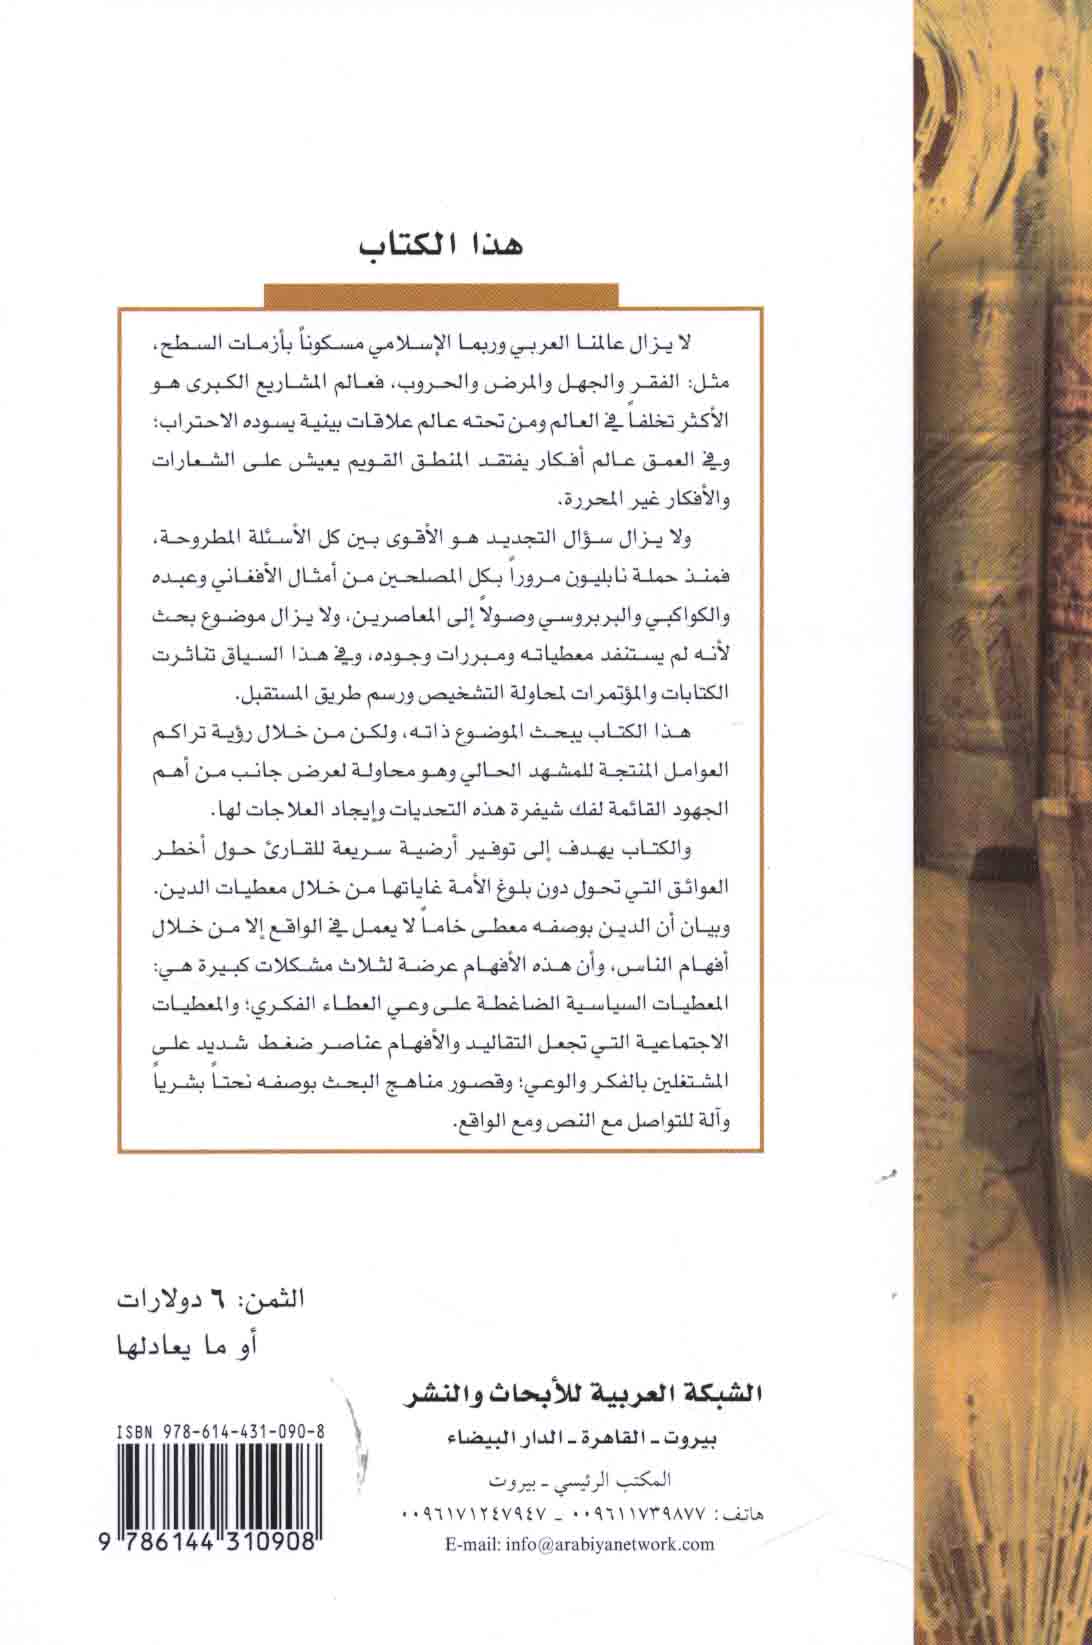 هذا الكتاب
لا يزال عالمنا العربي وربما الإسلامي مسكوناً بأزمات السطح،
مثل: الفقر والجهل والمرض والحروب، فعالم المشاريع الكبرى هو
الأكثر تخلفاً في العالم ومن تحته عالم علاقات بينية يسوده الاحتراب؛
وفي العمق عالم أفكار يفتقد المنطق القويم يعيش على الشعارات
والأفكار غير المحررة.
ولا يزال سؤال التجديد هو الأقوى بين كل الأسئلة المطروحة،
فمنذ حملة نابليون مروراً بكل المصلحين من أمثال الأفغاني وعبده
والكواكبي والبربروسي وصولاً إلى المعاصرين، ولا يزال موضوع بحث
لأنه لم يستنفد معطياته ومبررات وجوده، وفي هذا السياق تناثرت
الكتابات والمؤتمرات لمحاولة التشخيص ورسم طريق المستقبل.
هذا الكتاب يبحث الموضوع ذاته، ولكن من خلال رؤية تراكم
العوامل المنتجة للمشهد الحالي وهو محاولة لعرض جانب من أهم
الجهود القائمة لفك شيفرة هذه التحديات وإيجاد العلاجات لها.
والكتاب يهدف إلى توفير أرضية سريعة للقارئ حول أخطر
العوائق التي تحول دون بلوغ الأمة غاياتها من خلال معطيات الدين.
وبيان أن الدين بوصفه معطى خاماً لا يعمل في الواقع إلا من خلال
أفهام الناس، وأن هذه الأفهام عرضة لثلاث مشكلات كبيرة هي:
المعطيات السياسية الضاغطة على وعي العطاء الفكري؛ والمعطيات
الاجتماعية التي تجعل التقاليد والأفهام عناصر ضغط شديد على
المشتغلين بالفكر والوعي؛ وقصور مناهج البحث بوصفه نحتاً بشرياً
وآلة للتواصل مع النص ومع الواقع.
الثمن: ٦ دولارات
أو ما يعادلها
الشبكة العربية للأبحاث والنشر
بيروت - القاهرة - الدار البيضاء
المكتب الرئيسي - بيروت
هاتف: ٠٠٩٦١١٧٣٩٨٧٧ - ٠٠٩٦١٧١٢٤٧٩٤٧
E-mail: info@arabiyanetwork.com
ISBN 978-614-431-090-8
9 786144 310908